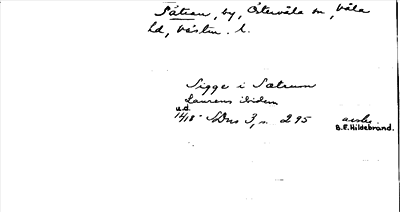 Sätran, by, Östervåla sn, Våla
hd, Västm. l.
Sigge i Sætrum
Laurens ibidem
u.d.
14/18 SDns 3, s. 295
B.E. Hildebrand.